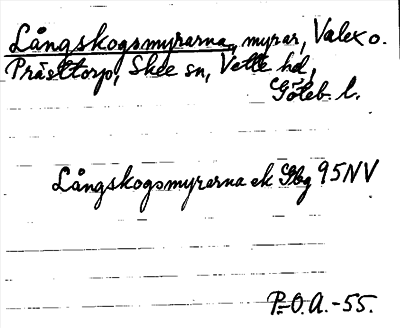 Långskogsmyrarna, myrar, Valex o.
Prästtorp, Skee sn, Vette hd,
Göteb. l.
Långskogsmyrarna ek Gbg 95NV
P.O.A. -55.